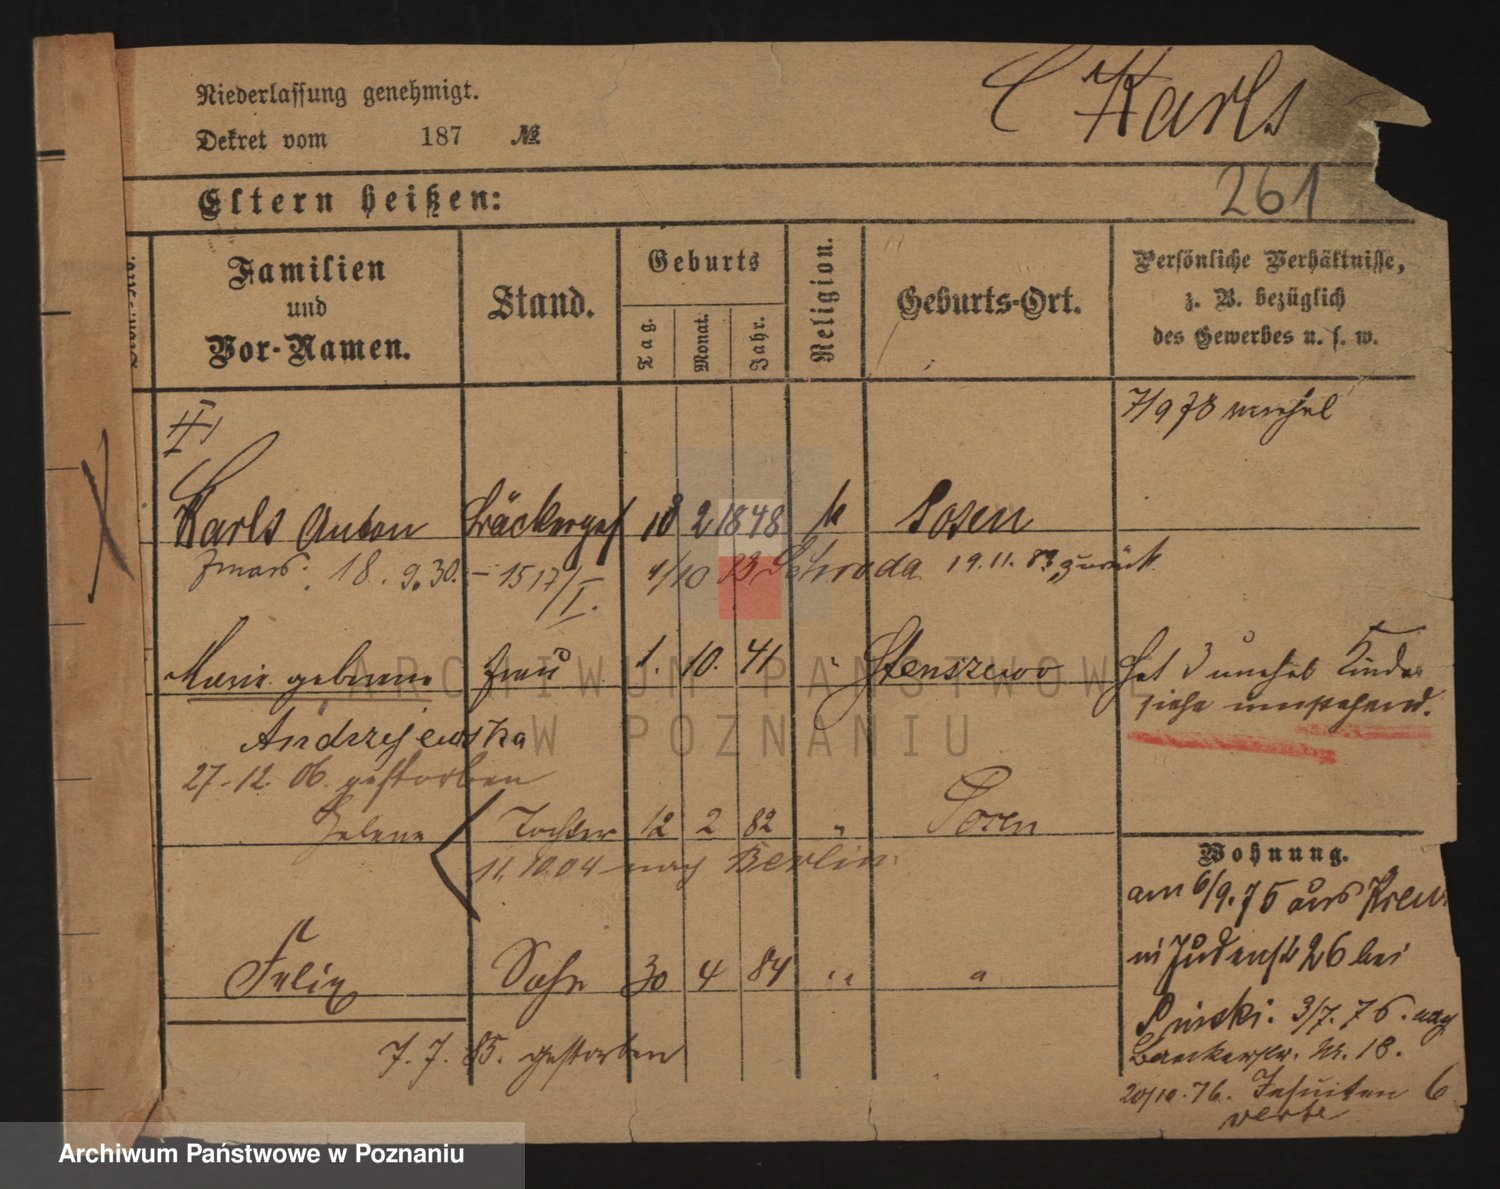 Niederlassung genehmigt.
Dekret vom 187 №.
C Karls
261
Eltern heißen:
Familien
und
Vor-Namen.
Stand.
Geburts
Tag.
Monat.
Jahr.
Religion.
Geburts-Ort.
Persönliche Verhältnisse,
z. B. bezüglich
des Gewerbes u. s. w.
7/9 78
II
Karls Anton Bäckerges 10 2 1848 k Posen
18. 9. 30. – 1517/I. 4/10 83 Schroda 19.11.83 zurück
Marie geborene Frau 1. 10. 41 " Stenszewo
Hat 3 unehel Kinder
siehe umstehend.
Andrzejewska
27-12. 06. gestorben
Helene Tochter 12 2 82 " Posen
11. 10. 04 nach Berlin.
Felix Sohn 30 4 84 " "
7. 7. 85. gestorben
Wohnung.
am 6/9. 75 aus
in Judenstr 26 bei
3/7. 76. nach
Bäckerstr. Nr. 18.
20/10. 76. Jesuiten 6
verte
ARCHIWUM PAŃSTWOWE
W POZNANIU
Archiwum Państwowe w Poznaniu